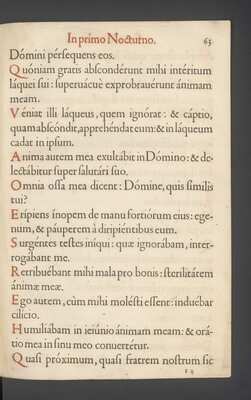 In primo Nocturno. 63
Dómini pérsequens eos.
Quóniam gratis abscondérunt mihi intéritum
láquei sui: supervácuè exprobravérunt ánimam
meam.
Véniat illi láqueus, quem ignórat: & cáptio,
quam abscóndit, apprehéndat eum: & in láqueum
cadat in ipsum.
Anima autem mea exultábit in Dómino: & de-
lectábitur super salutári suo.
Omnia ossa mea dicent: Dómine, quis símilis
tui?
Erípiens ínopem de manu fortiórum eius: ege-
num, & páuperem à diripiéntibus eum.
Surgéntes testes iníqui: quæ ignorábam, inter-
rogábant me.
Retribuébant mihi mala pro bonis: sterilitátem
ánimæ meæ.
Ego autem, cùm mihi molésti essent: induébar
cilício.
Humiliábam in ieiúnio ánimam meam: & orá-
tio mea in sinu meo convertétur.
Quasi próximum, quasi fratrem nostrum sic